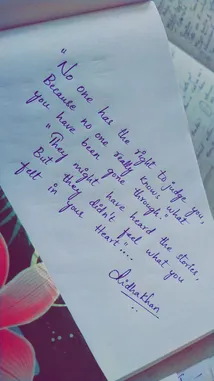 "No one has the right to judge you,
Because no one really knows what
you have been gone through."
"They might have heard the stories,
But they didn't feel what you
felt in your
Heart"....